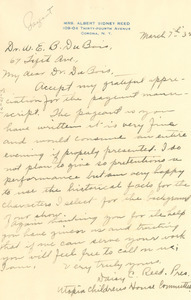 Pageant
MRS. ALBERT SIDNEY REED
108-04 THIRTY-FOURTH AVENUE
CORONA, N. Y.
March 7th
Dr. W. E. B. Du Bois,
67 Fifth Ave.,
My dear Dr. Du Bois,
Accept my grateful appre-
ciation for the pageant manu-
script. The pageant as you
have written it is very fine
and would consume an entire
evening if properly presented. I do
not plan to give so pretentious a
performance but am very happy
to use the historical facts for the
characters I select for the background
of our show.
Again thanking you for the help
you have given us and trusting
that if one can serve you
you will feel free to call on me,
I am,
Very truly yours,
Daisy C. Reed, Pres.
Utopia Children's House Committee